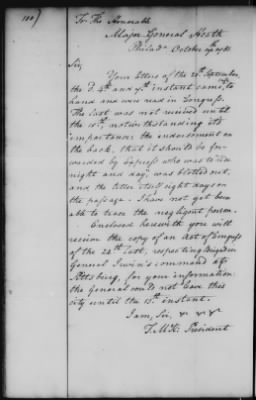 To The Honorable
Major General Heath
Philada October 19th 1781
Sir,
Your letters of the 28th September,
the 2d, 4th and 9th instant came to
hand and were read in Congress.
The last was not received until
the 18th, notwithstanding its
importance & the endorsement on
the back, that it should be for-
warded by Express who was to ride
night and day, was blotted out,
and the letter itself eight days on
the passage. I have not yet been
able to trace the negligent person.
Enclosed herewith you will
receive the copy of an Act of Congress
of the 24th last, respecting Brigadier
General Irwin's command at
Pittsburg, for your information.
the General could not leave this
city until the 13th instant.
I am, Sir,
T. M:K: President